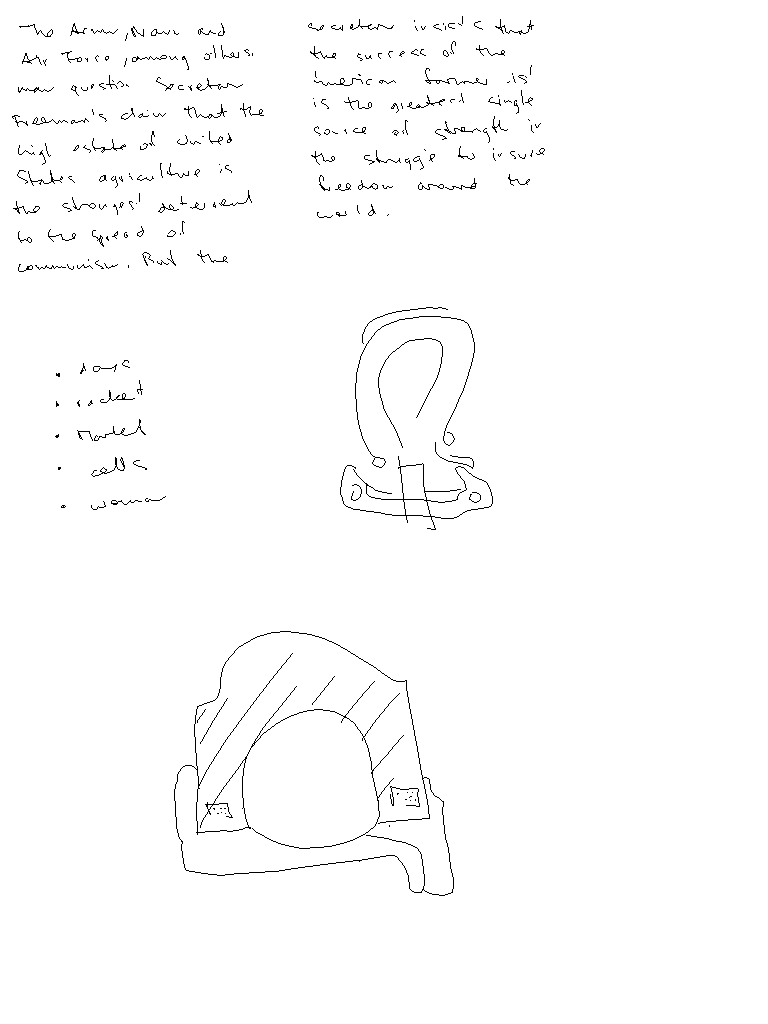 The Army, Navy and
Air Force, among others,
may question Secretary
Freeman's claim that the
high estate of United
States agriculture is
the strongest deterrent
to the spread of
communism. But the
secretary insists that
the success of the
American farmer is
is the greatest single
source of strength in
the struggle to insure
freedom around the
world.
rocket
Market
cells
woman